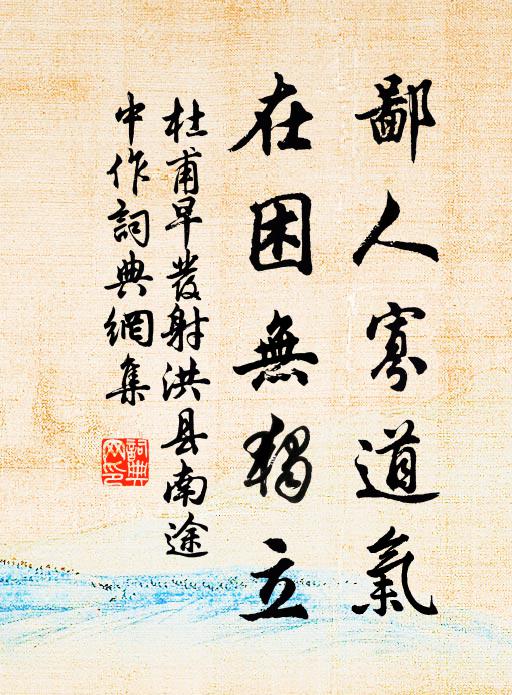 鄙人寡道氣
在困無獨立
杜甫早發射洪县南途
中作詞典網集
詞典
网印